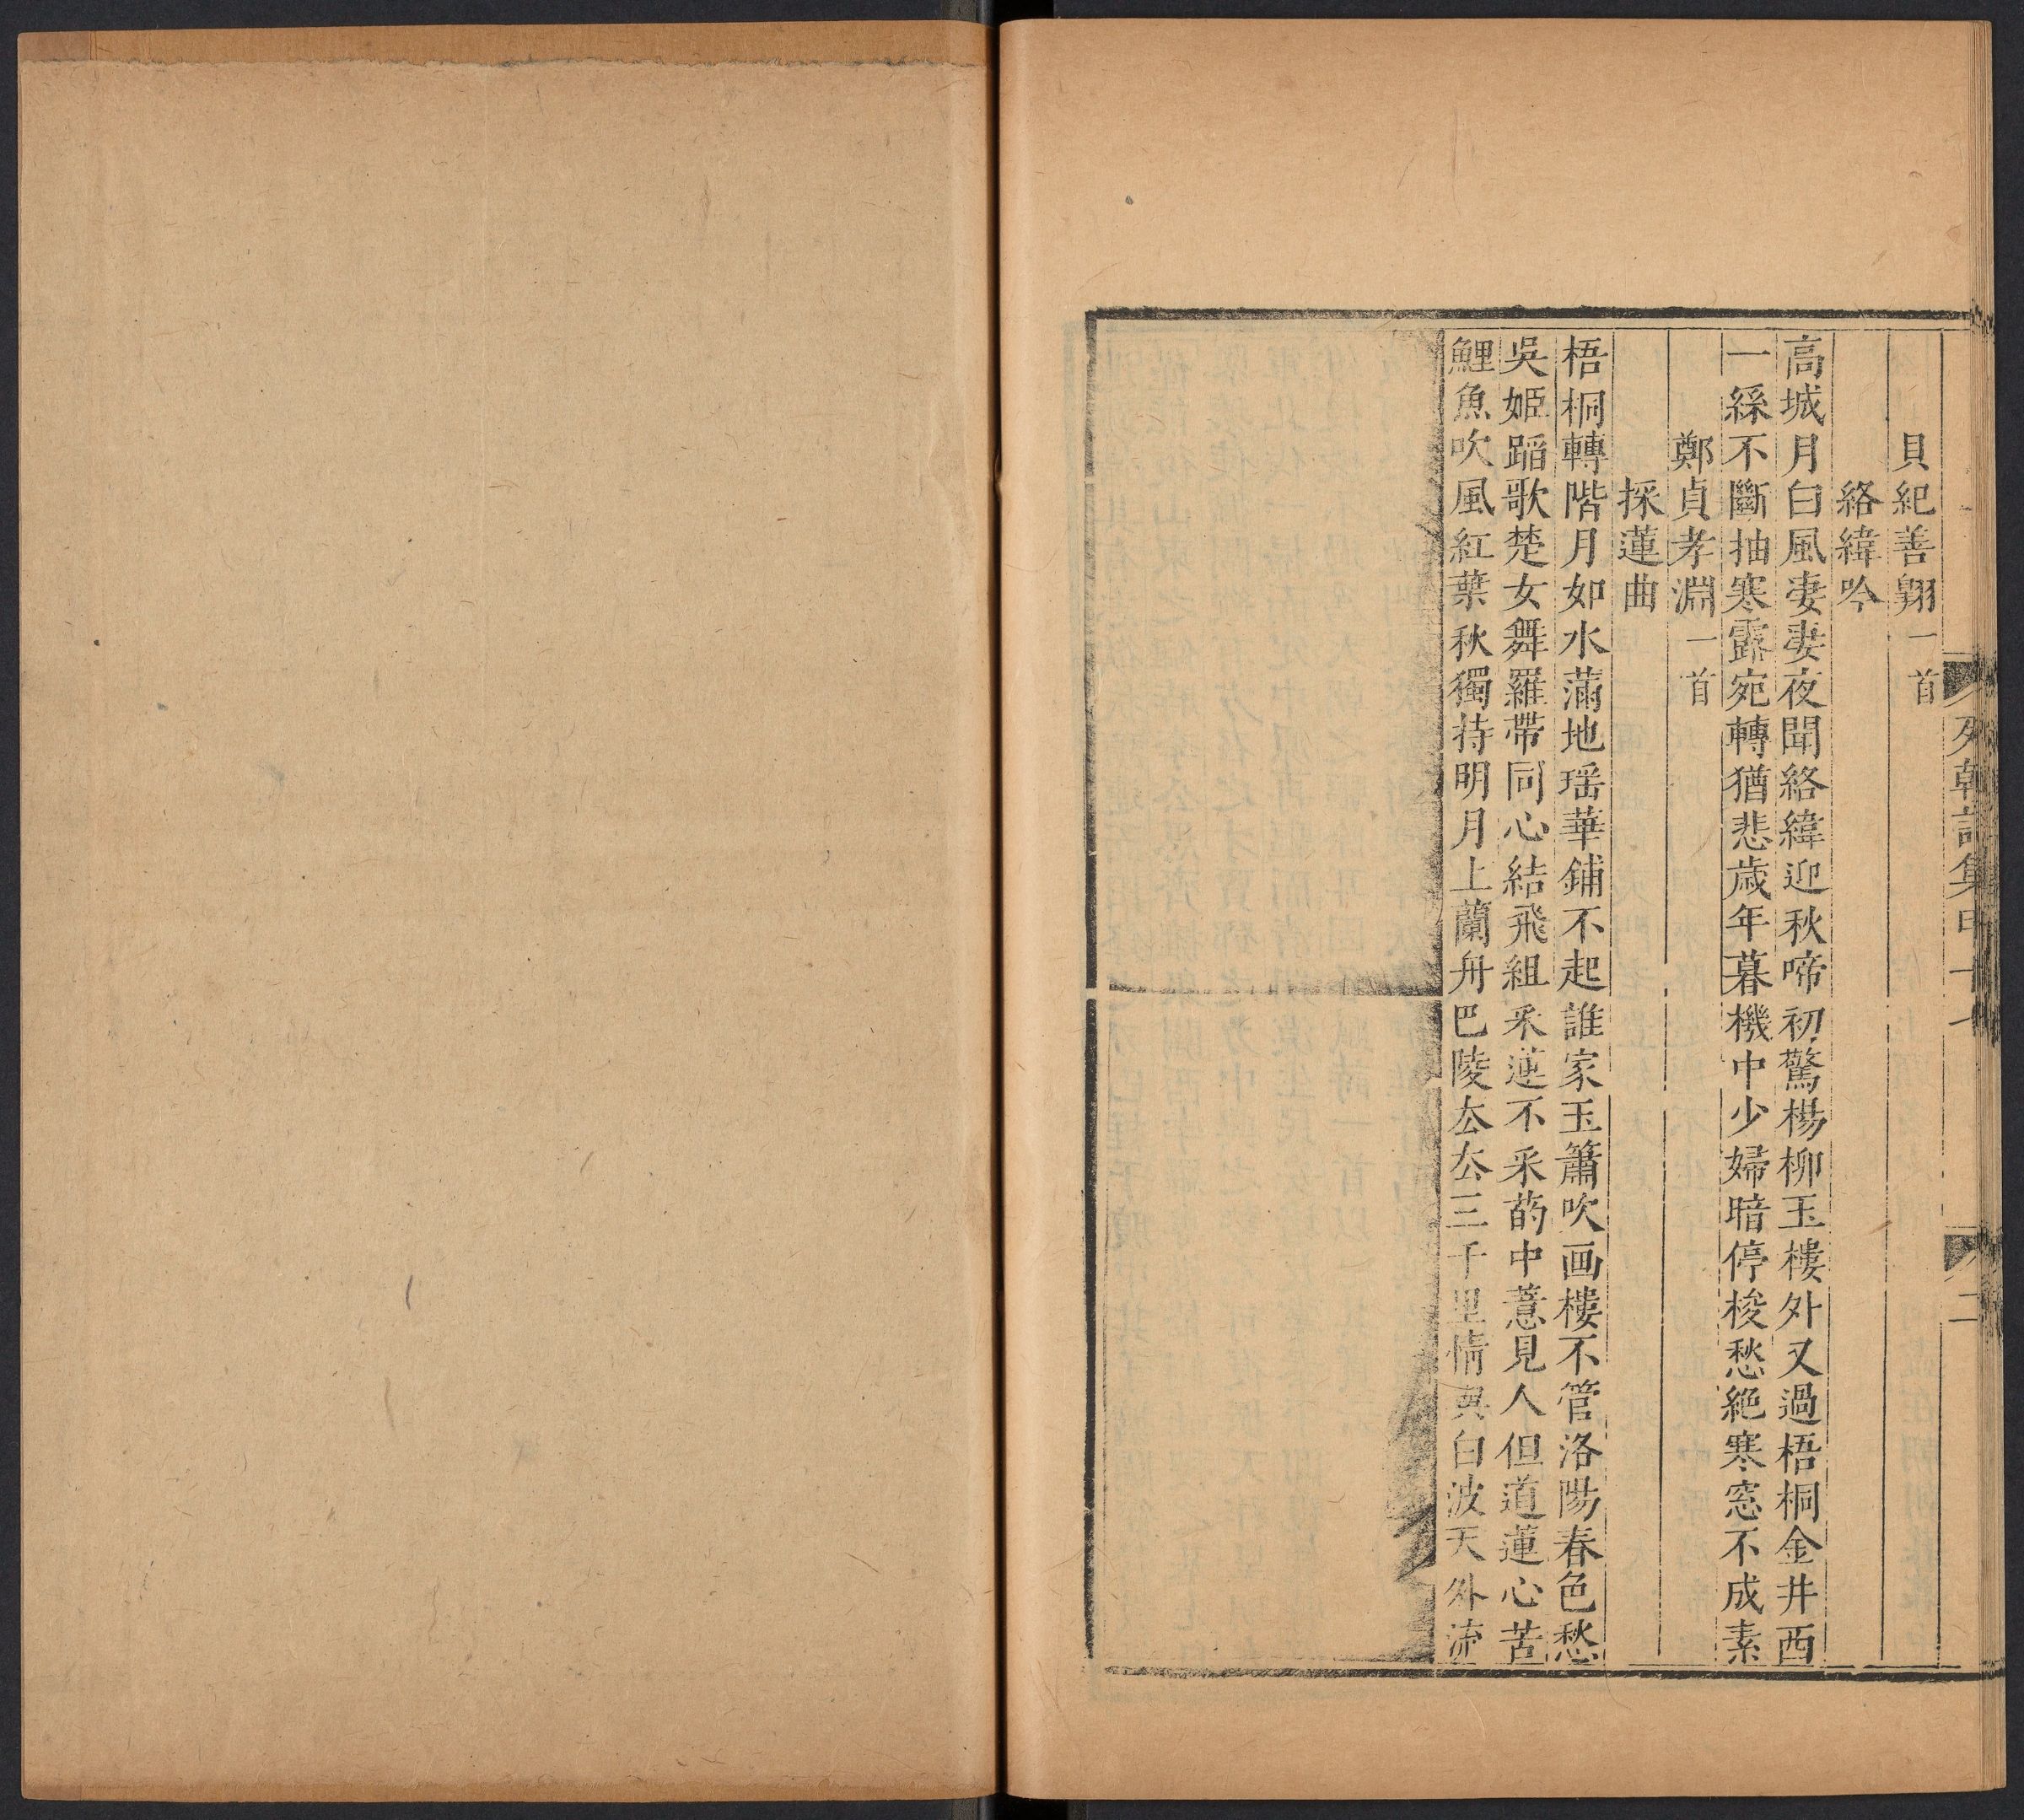 列朝詩集甲十一 二
貝紀善翱一首
絡緯吟
高城月白風淒淒夜聞絡緯迎秋啼初驚楊柳玉樓外又過梧桐金井西
一絲不斷抽寒露宛轉猶悲歲年暮機中少婦暗停梭愁絕寒窓不成素
鄭貞孝淵一首
採蓮曲
梧桐轉階月如水滿地瑶華鋪不起誰家玉簫吹画樓不管洛陽春色愁
吳姬蹈歌楚女舞羅帶同心結飛組采蓮不采菂中薏見人但道蓮心苦
鯉魚吹風紅葉秋獨持明月上蘭舟巴陵厺厺三千里情與白波天外流